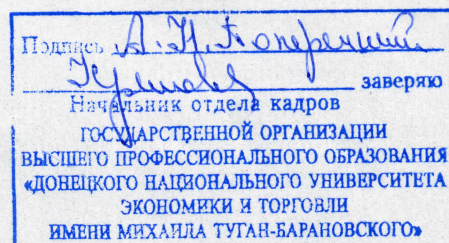 Подпись А.Н. Поперечний
заверяю
Начальник отдела кадров
ГОСУДАРСТВЕННОЙ ОРГАНИЗАЦИИ
ВЫСШЕГО ПРОФЕССИОНАЛЬНОГО ОБРАЗОВАНИЯ
«ДОНЕЦКОГО НАЦИОНАЛЬНОГО УНИВЕРСИТЕТА
ЭКОНОМИКИ И ТОРГОВЛИ
ИМЕНИ МИХАИЛА ТУГАН-БАРАНОВСКОГО»